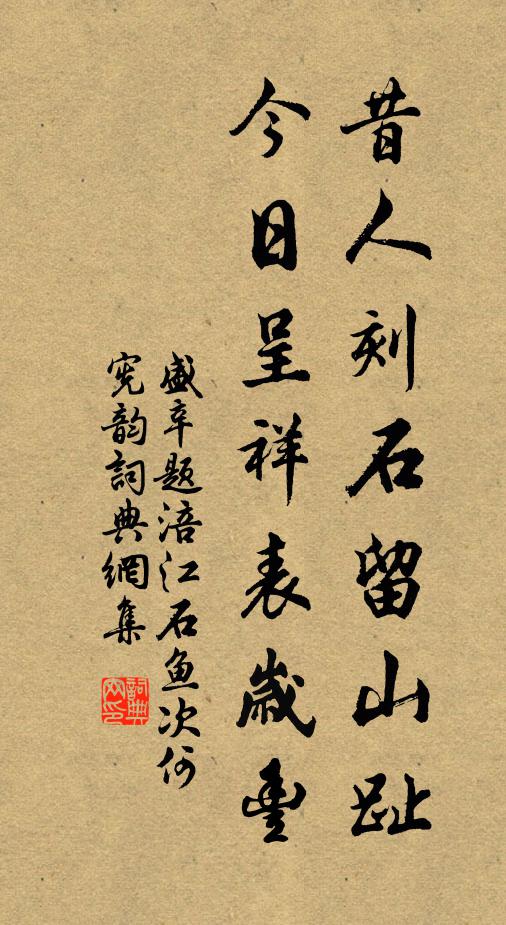 昔人刻石留山趾
今日呈祥表歲豐
盛辛題涪江石魚次何
憲韵詞典網集
詞典
网印